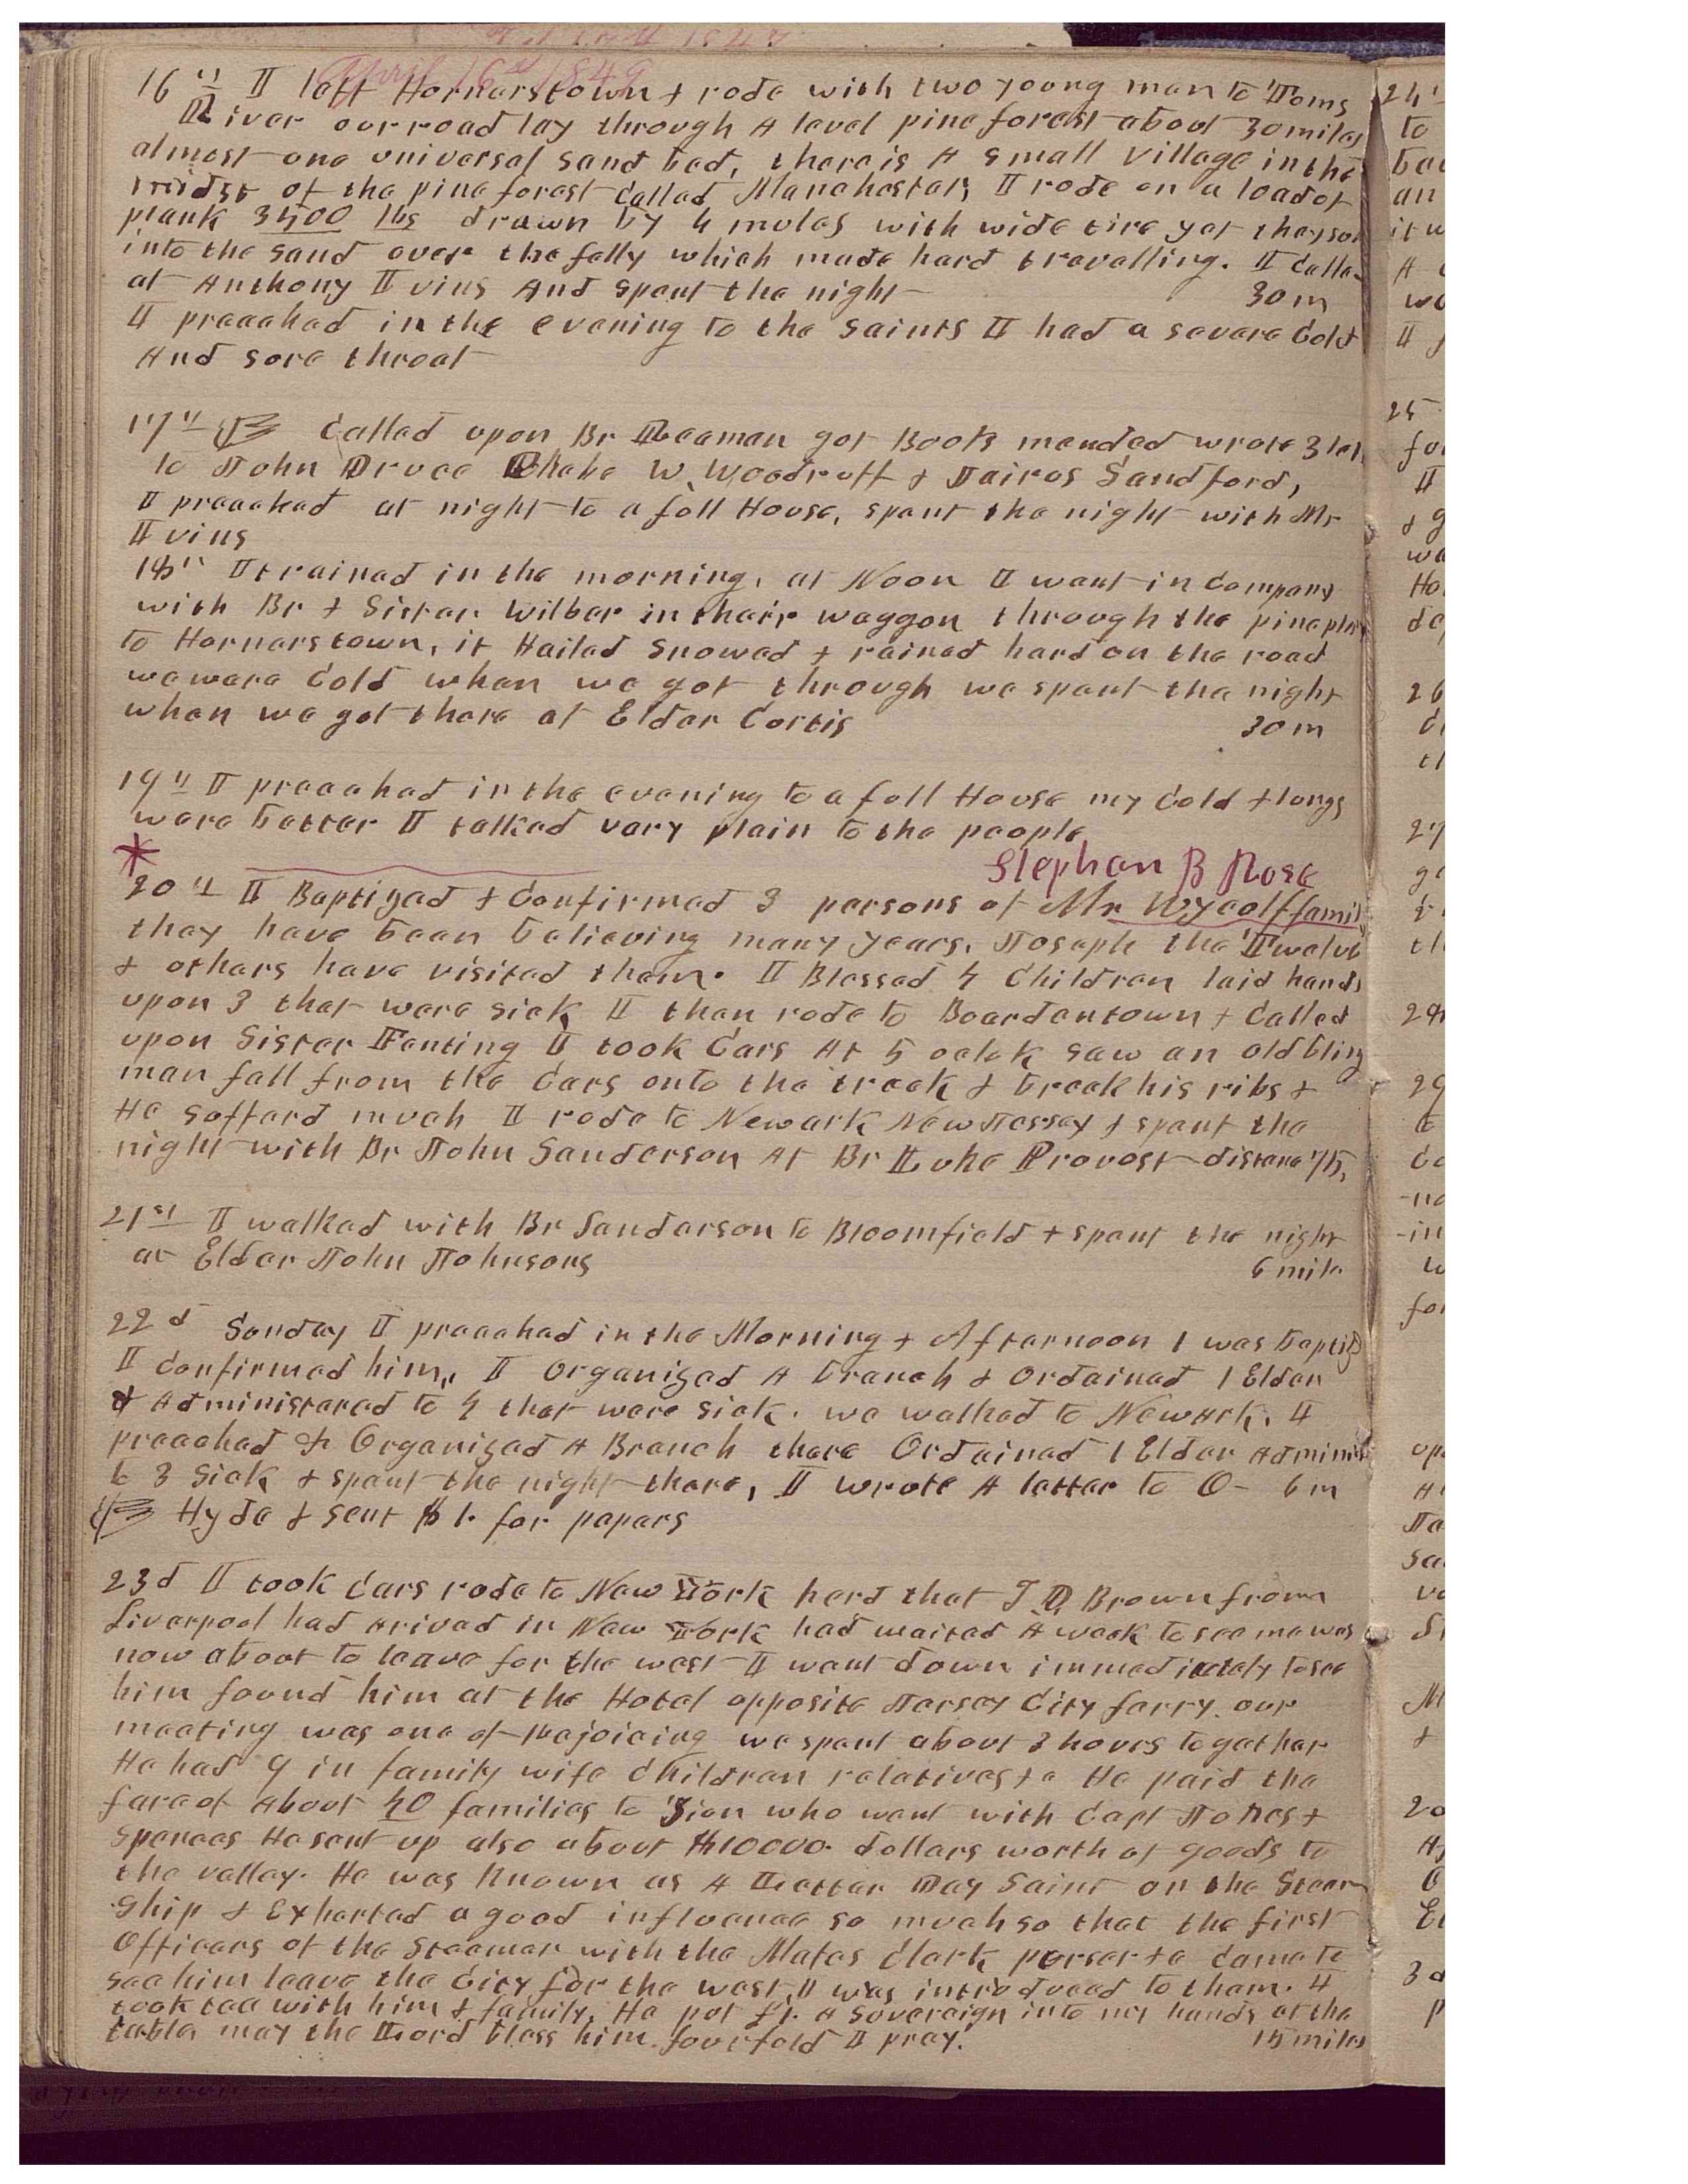 April 16th 1849
16th I left Hornerstown & rode with two young men to Toms
River our road lay through A level pine forest about 30 miles
almost one universal sand bed, there is A small village in the
midst of the pine forest Called Manchester, I rode on a load of
plank 3500 lbs drawn by 4 mules with wide tire yet they
into the sand over the felly which made hard travelling. I Calle
at Anthony Ivins And spent the night 30 m
I preeached in the evening to the Saints I had a severe Cold
And sore throat
17th Called upon Br Leeman got Book mended wrote 3 let
to John Druce Phebe W. Woodruff & Jairus Sandford,
I preeached at night to a full House, spent the night with Mr
Ivins
18th It rained in the morning, at Noon I went in Company
with Br & Sister Wilber in their waggon through the pine
to Hornerstown, it Hailed Snowed & rained hard on the road
we were Cold when we got through we spent the night
when we got there at Elder Curtis 30 m
19th I preeached in the evening to a full House my Cold & lungs
were better I talked very plain to the people
Stephen B Rose
* 20th I Baptized & Confirmed 3 persons of Mr Wycoff family
they have been believing many years. Joseph the Twelve
& others have visited them. I Blessed 4 Children laid hands
upon 3 that were sick I then rode to Boardentown & Called
upon Sister Fenting I took Cars At 5 oclok saw an old blind
man fall from the Cars onto the track & break his ribs &
He sufferd much I rode to Newark New Jersey & spent the
night with Br John Sanderson At Br Luke Provost distance 75,
21st I walked with Br Sanderson to Bloomfield & spent the night
at Elder John Johnsons 6 mile
22d Sunday I preeached in the Morning & Afternoon 1 was baptiz
I Confirmed him, I Organized A branch & Ordained 1 Elder
& Administered to 4 that were sick. we walked to Newark. I
preeached & Organized A Branch there Ordained 1 Elder Adminis
to 3 Sick & spent the night there, I wrote A letter to O- 6 m
Hyde & sent $1. for papers
23d I took Cars rode to New York herd that T D Brown from
Liverpool had Arived in New York had waited A week to see me was
now about to leave for the west I went down immediately to see
him found him at the Hotel opposite Jersey City ferry. our
meeting was one of Rejoicing we spent about 3 hours together
He had 9 in family wife Children relatives &c He paid the
fare of About 40 families to Zion who went with Capt Jones &
Spences He sent up also about $10000. dollars worth of goods to
the valley. He was known as A Latter Day Saint on the Steam
Ship & Exherted a good influence so much so that the first
Officers of the Steemer with the Mates Clark purser &c Came to
see him leave the City for the west, I was introduced to them. I
took tea with him & family. He put £1. A Sovereign into my hands at the
table may the Lord bless him fourfold I pray. 15 miles